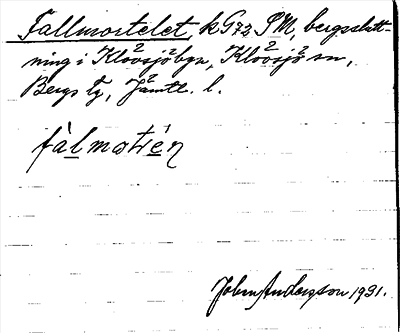 Fallmortelet, k G72 SM, bergsslutt-
ning i Klövsjöbyn, Klövsjö sn,
Bergs tg, Jämtl. l.
fàlmotrén
John Andersson 1931.